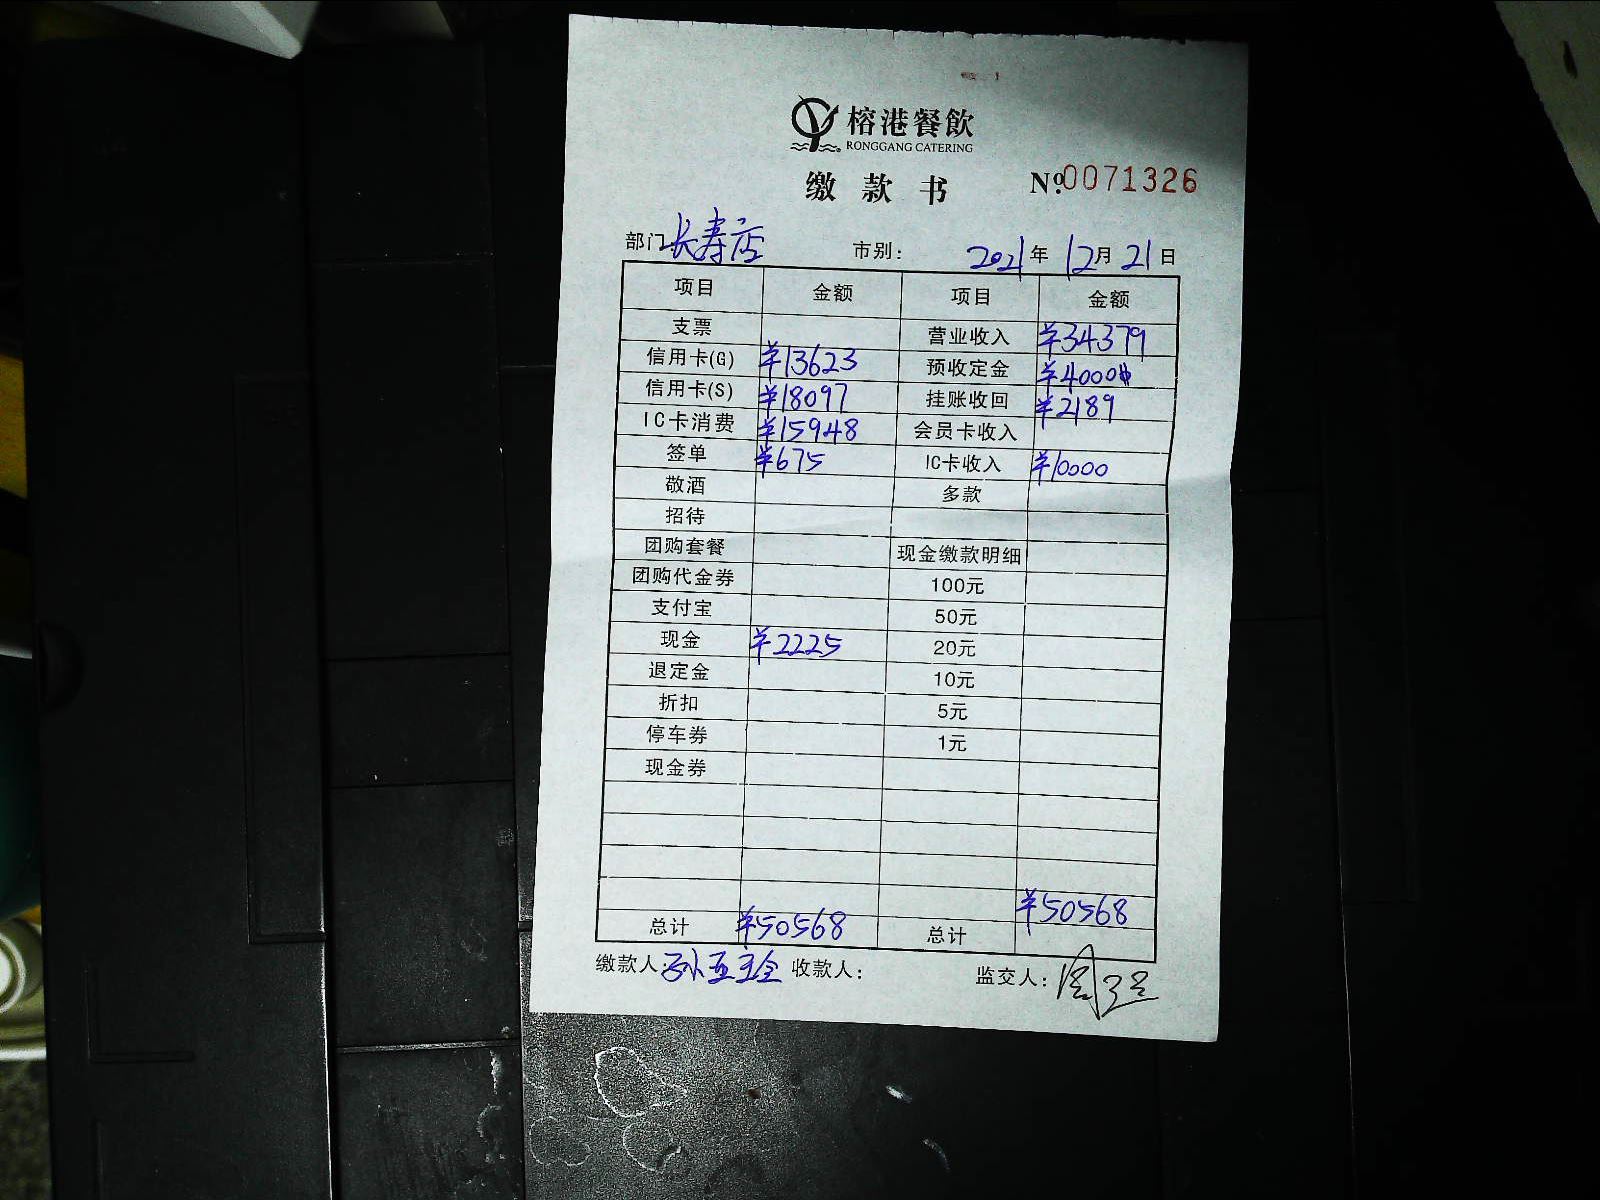 榕港餐飲
RONGGANG CATERING
缴款书 №0071326
部门:长寿店 市别: 2021年12月21日
项目 金额 项目 金额
支票 营业收入 ¥34379
信用卡(G) ¥13623 预收定金 ¥4000
信用卡(S) ¥18097 挂账收回 ¥2189
IC卡消费 ¥15948 会员卡收入
签单 ¥675 IC卡收入 ¥10000
敬酒 多款
招待
团购套餐 现金缴款明细
团购代金券 100元
支付宝 50元
现金 ¥2225 20元
退定金 10元
折扣 5元
停车券 1元
现金券
¥50568
总计 ¥50568 总计
缴款人: 收款人: 监交人: